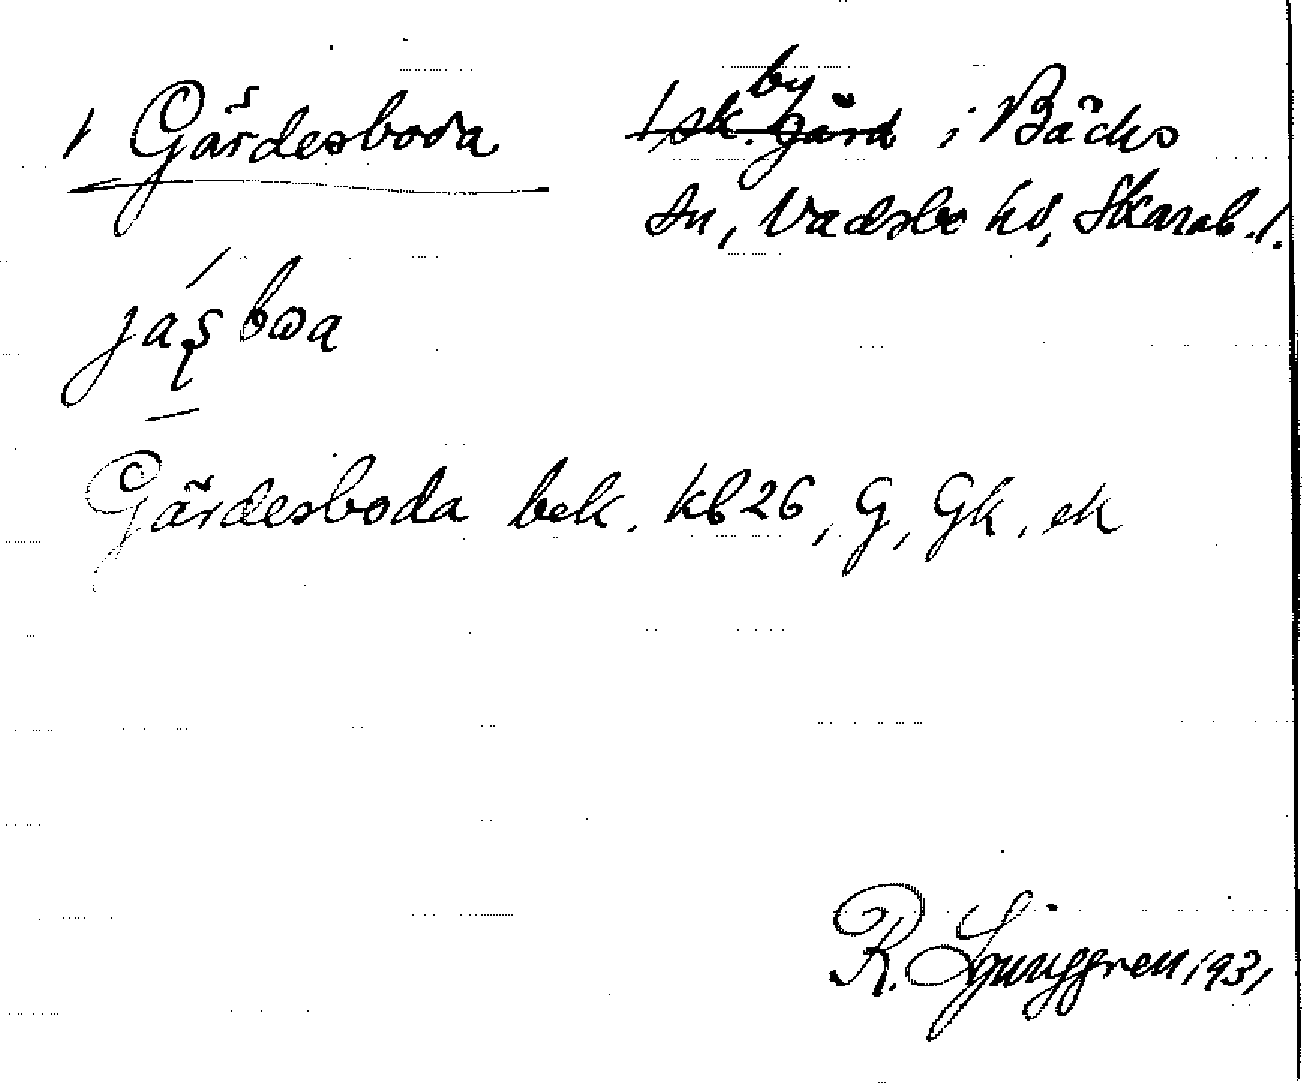 1 Gärdesboda by i Bäcks
sn, Vadsbo hd, Skarab. l.
Gärdesboda bek. kb 26, G, Gk, ek
R. Ljunggren 1931